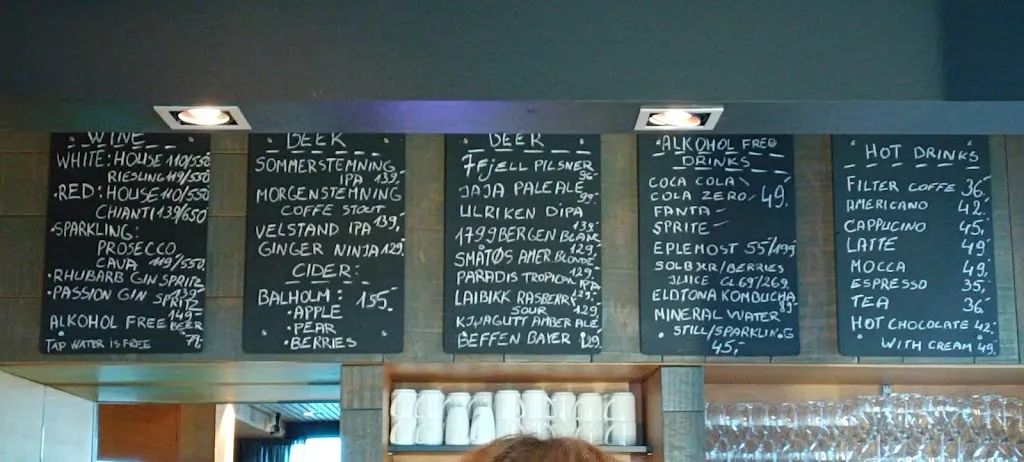 WINE
WHITE: HOUSE 110/550
RIESLING 119/550
•RED: HOUSE 110/550
CHIANTI 139/650
•SPARKLING:
PROSECCO
CAVA 119/550
•RHUBARB GIN SPRITZ
•PASSION GIN SPRITZ
149,-
ALKOHOL FREE BEER
TAP WATER IS FREE 79,-
BEER
SOMMERSTEMNING
IPA 139,-
MORGENSTEMNING
COFFE STOUT
VELSTAND IPA 139,-
GINGER NINJA 129,-
CIDER:
BALHOLM: 155,-
•APPLE
•PEAR
•BERRIES
BEER
7FJELL PILSNER
96,-
JAJA PALE ALE
99,-
ULRIKEN DIPA
139,-
1799 BERGEN BLANK
SMÅTØS AMER BLONDE
129,-
PARADIS TROPICAL
IPA
LAIBIKK RASBERRY
SOUR 129,-
KJVAGUTT AMBER ALE
BEFFEN BAYER 129,-
•ALKOHOL FREE
DRINKS
COCA COLA
COLA ZERO 49,-
FANTA
SPRITE
EPLEMOST 55/199
SOLBÆR/BERRIES
JUICE GL 69/269
ELDTONA KOMBUCHA
89,-
MINERAL WATER
STILL/SPARKLING
45,-
HOT DRINKS
FILTER COFFE 36,-
AMERICANO 42,-
CAPPUCINO 45,-
LATTE 49,-
MOCCA 49,-
ESPRESSO 35,-
TEA 36,-
HOT CHOCOLATE 42,-
WITH CREAM 49,-